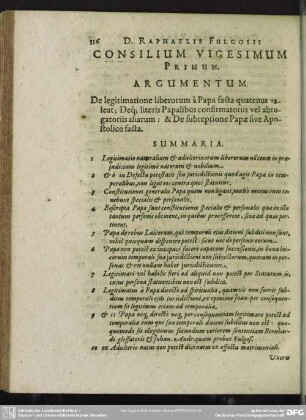 116 D. RAPHAELIS FULGOSII
CONSILIUM VIGESIMUM
PRIMUM.
ARGUMENTUM
De legitimatione liberorum à Papa facta quatenus va-
leat, Deq; literis Papalibus confirmatoriis vel abro-
gatoriis aliarum: & De subreptione Papæ sive Apo-
stolico facta.
SUMMARIA.
1 Legitimatio naturalium & adulterinorum liberorum
judicium legitimè natorum & nobilium.
2 & 6 in Defectu potestatis seu jurisdictionis quod agit Papa in tem-
poralibus, non ligat
3 Constitutiones generales Papæ quem non ligant, multò minùs eum te-
nebunt speciales & personales.
4 Rescripta Papæ sunt constitutiones speciales & personales quia in illa
tantum persona obtinent, in quibus proferuntur, sive ad quas per-
tinent.
5 Papa de rebus Laicorum, qui temporali ejus ditioni subditi non sunt,
nihil quicquam disponere potest: sicut nec de personis eorum.
6 Papa non potest ex incapaci facere capacem successionis, in bonis lai-
corum temporali sua jurisdictioni non subjectorum, quum in per-
sonas & res nullam habet jurisdictionem.
7 Legitimari vel habilis fieri ad aliquid non potest per Statutum is,
cujus persona statuentis jurisdictioni non subest.
8 Legitimatus à Papa directè ad spiritualia, quamvis non fuerit sub-
ditus temporali ejus jurisdictioni,
tiam sit legitimus etiam ad temporalia.
9 & 11 Papa neq; directè neq; per consequentiam legitimare potest ad
temporalia eum qui sua temporali ditioni subditus non est: quo-
quomodo sit illegitimus secundum veriorem sententiam Bernhar-
di glossatoris & Johan. Andr. quam probat Fulgos.
10 ex Adulterio natus non potest dici natus ex affectu matrimoniali.
Uxore